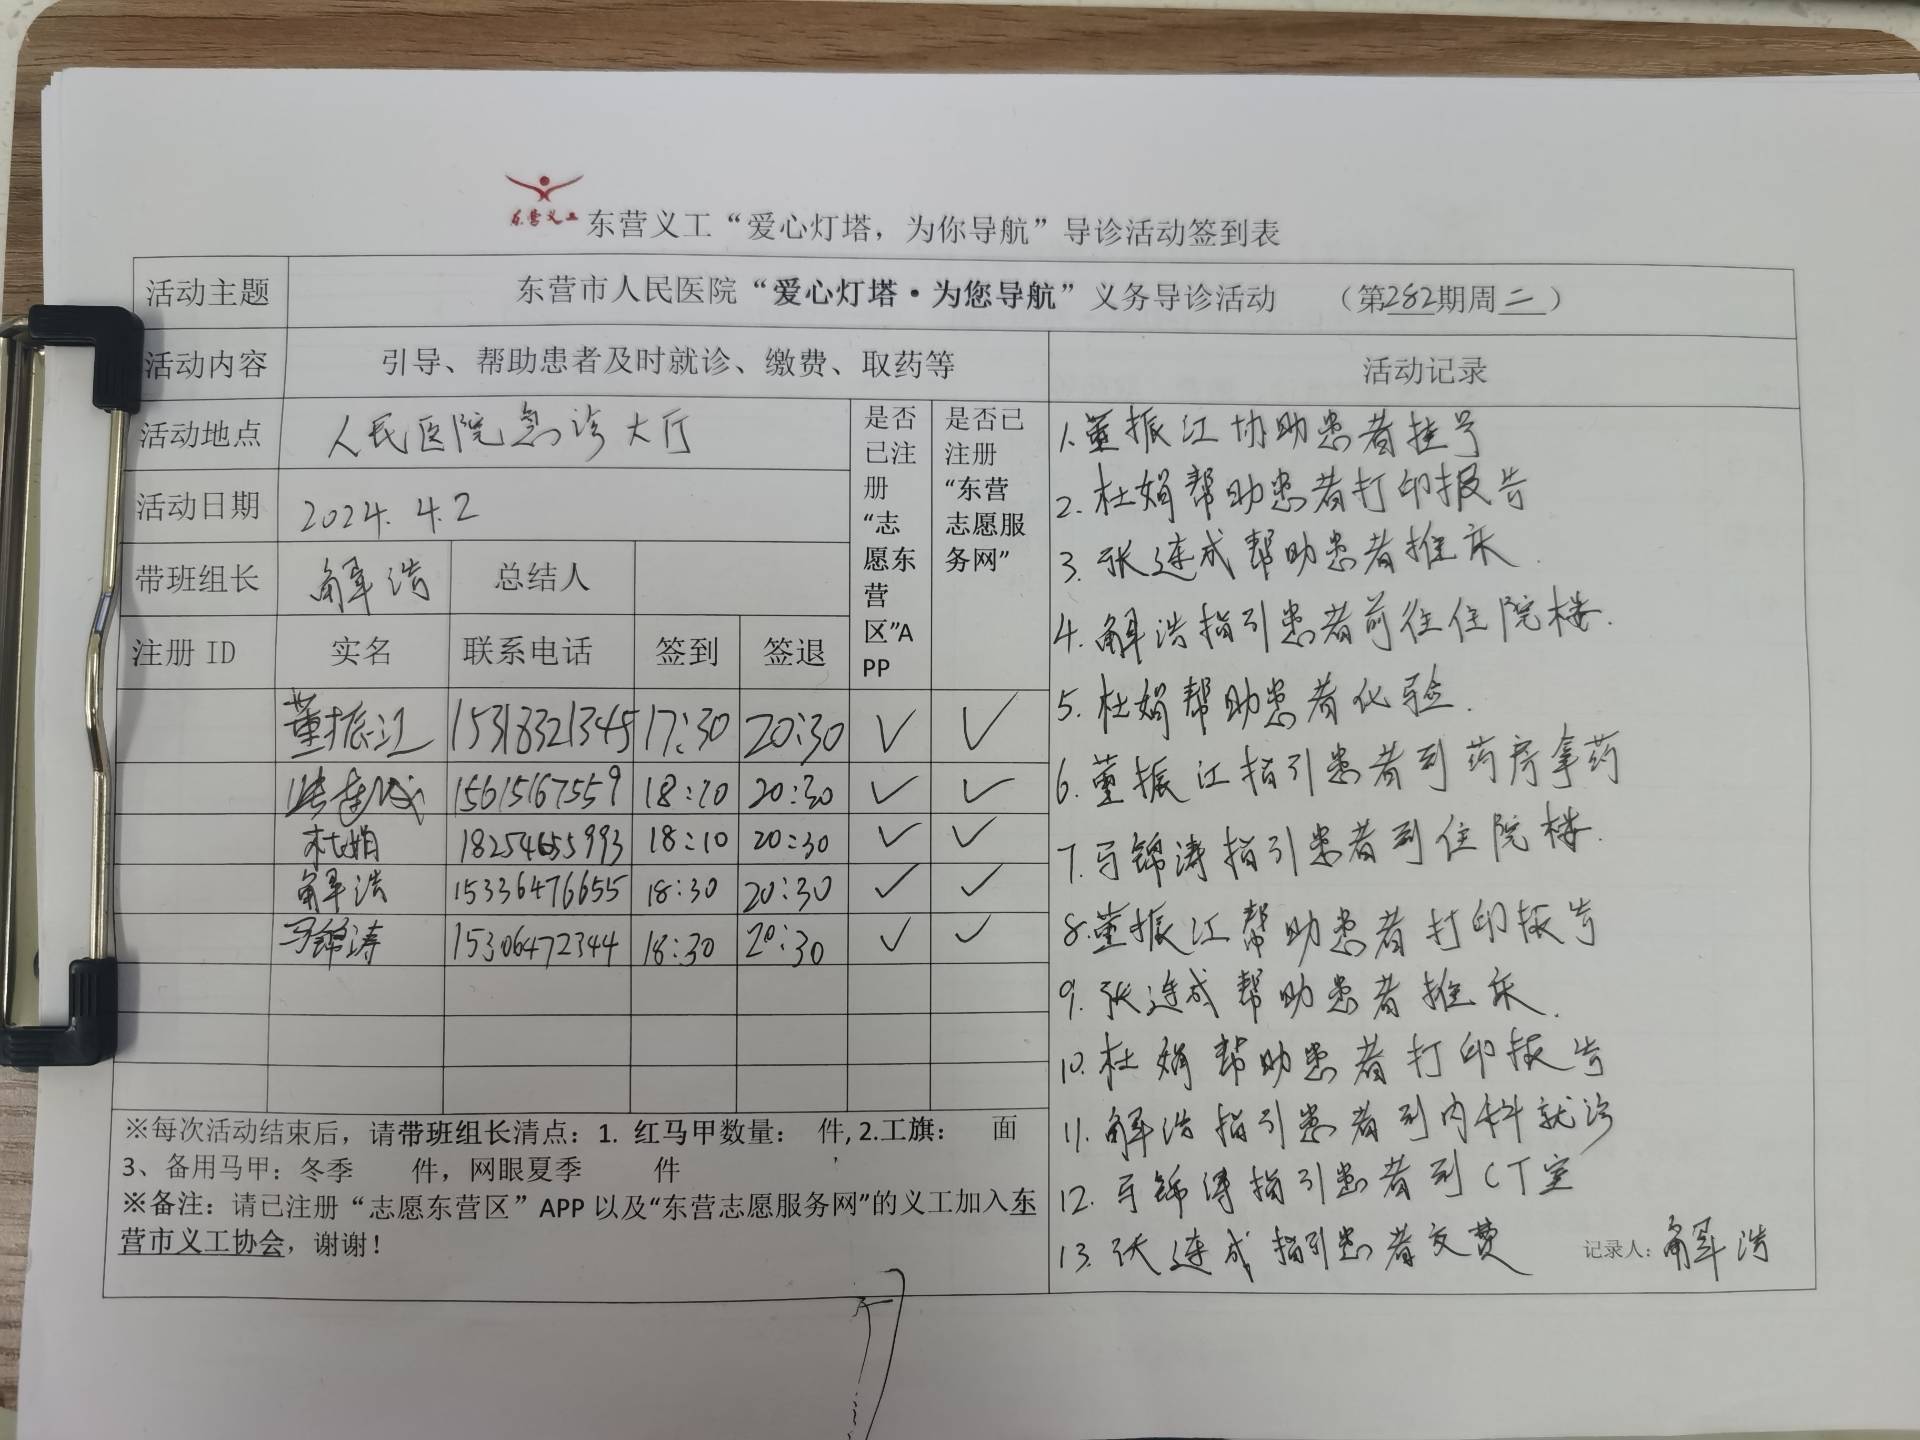 东营义工 东营义工“爱心灯塔，为你导航”导诊活动签到表
活动主题 东营市人民医院“爱心灯塔·为您导航”义务导诊活动 （第282期周二）
活动内容 引导、帮助患者及时就诊、缴费、取药等 活动记录
活动地点 人民医院急诊大厅
活动日期 2024.4.2
带班组长 解浩 总结人
是否已注册“志愿东营区”APP
是否已注册“东营志愿服务网”
注册 ID 实名 联系电话 签到 签退
董振江 15318321345 17:30 20:30 ✓ ✓
张连成 15615167559 18:10 20:30 ✓ ✓
杜娟 18254655993 18:10 20:30 ✓ ✓
解浩 15336476655 18:30 20:30 ✓ ✓
马锦涛 15306472344 18:30 20:30 ✓ ✓
※每次活动结束后，请带班组长清点：1. 红马甲数量： 件, 2.工旗： 面
3、备用马甲：冬季 件，网眼夏季 件
※备注：请已注册“志愿东营区”APP 以及“东营志愿服务网”的义工加入东
营市义工协会，谢谢！
1.董振江协助患者挂号
2.杜娟帮助患者打印报告
3.张连成帮助患者推床.
4.解浩指引患者前往住院楼.
5.杜娟帮助患者化验.
6.董振江指引患者到药房拿药
7.马锦涛指引患者到住院楼.
8.董振江帮助患者打印报告
9.张连成帮助患者推床.
10.杜娟帮助患者打印报告
11.解浩指引患者到内科就诊
12.马锦涛指引患者到CT室
13.张连成指引患者交费
记录人：解浩